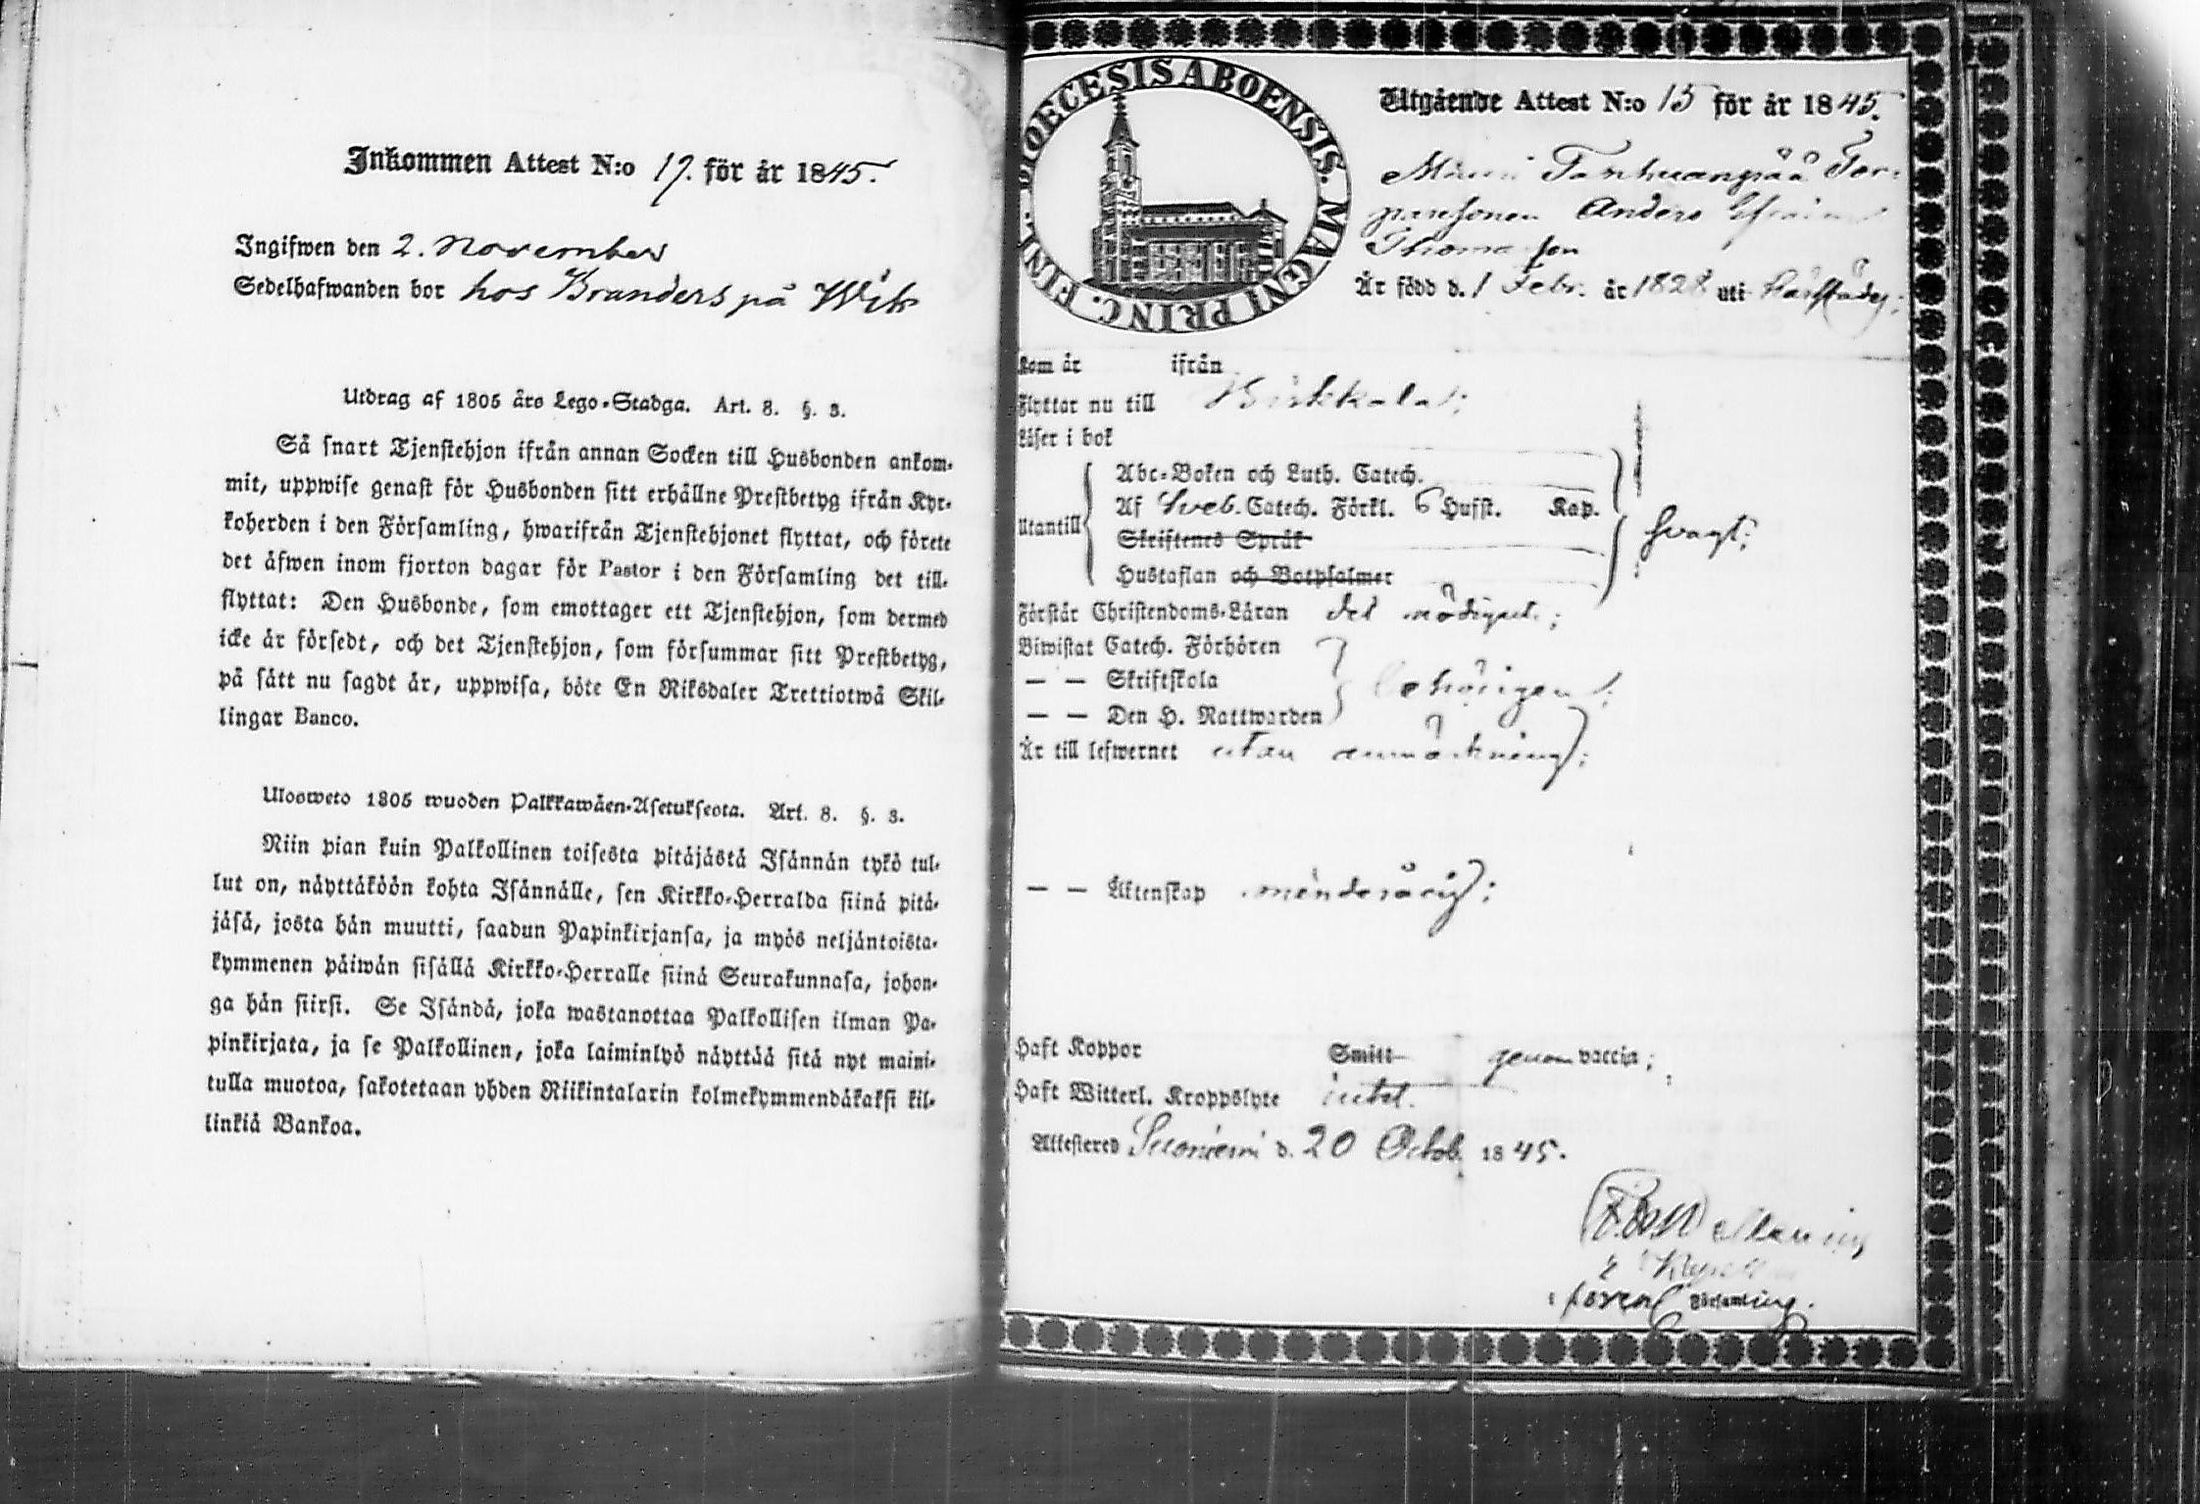 Inkommen Attest N:o 19. för år 1845.
Ingifwen den 2. November
Sedelhafwanden bor hos Branders på Wik
Utdrag af 1805 års Lego-Stadga. Art. 8. §. 3.
Så snart Tjenstehjon ifrån annan Socken till Husbonden ankom-
mit, uppwise genast för Husbonden sitt erhållne Prestbetyg ifrån Kyr-
koherden i den Församling, hwarifrån Tjenstehjonet flyttat, och förete
det äfwen inom fjorton dagar för Pastor i den Församling det till-
flyttat: Den Husbonde, som emottager ett Tjenstehjon, som dermed
icke är försedt, och det Tjenstehjon, som försummar sitt Prestbetyg,
på sätt nu sagdt är, uppwisa, böte En Riksdaler Trettiotwå Skil-
lingar Banco.
Ulosweto 1805 wuoden Palkkawäen-Asetuksesta. Art. 8. §. 3.
Niin pian kuin Palkollinen toisesta pitäjästä Isännän tykö tul-
lut on, näyttäköön kohta Isännälle, sen Kirkko-Herralda siinä pitä-
jäsä, josta hän muutti, saadun Papinkirjansa, ja myös neljäntoista-
kymmenen päiwän sisällä Kirkko-Herralle siinä Seurakunnasa, johon-
ga hän siirsi. Se Isändä, joka wastanottaa Palkollisen ilman Pa-
pinkirjata, ja se Palkollinen, joka laiminlyö näyttää sitä nyt maini-
tulla muotoa, sakotetaan yhden Riikintalarin kolmekymmendäkaksi kil-
linkiä Bankoa.
DIOECESIS ABOENSIS. MAGNI PRINC. FINL.
Utgående Attest N:o 15 för år 1845.
Tanhuanpää Tor-
paresonen Anders Efraim
Thomasson
Är född d. 1 Febr. år 1828 uti härstädes;
Kom år ifrån
Flyttar nu till Kirkkala;
Läser i bok
Utantill
Abc-Boken och Luth. Catech.
Af Sveb. Catech. Förkl. 6 Hufst. Kap.
Skriftenes Språk
Hustaflan och Botpsalmer
svagt;
Förstår Christendoms-Läran det nödigaste;
Biwistat Catech. Förhören
— — Skriftskola
— — Den H. Nattwarden
behörigen;
Är till lefwernet utan anmärkning;
— — Äktenskap minderårig;
Haft Koppor Smitt genom vaccin;
Haft Witterl. Kroppslyte intet.
Attesteres Suoniemi d. 20 Octob. 1845.
i Församling.